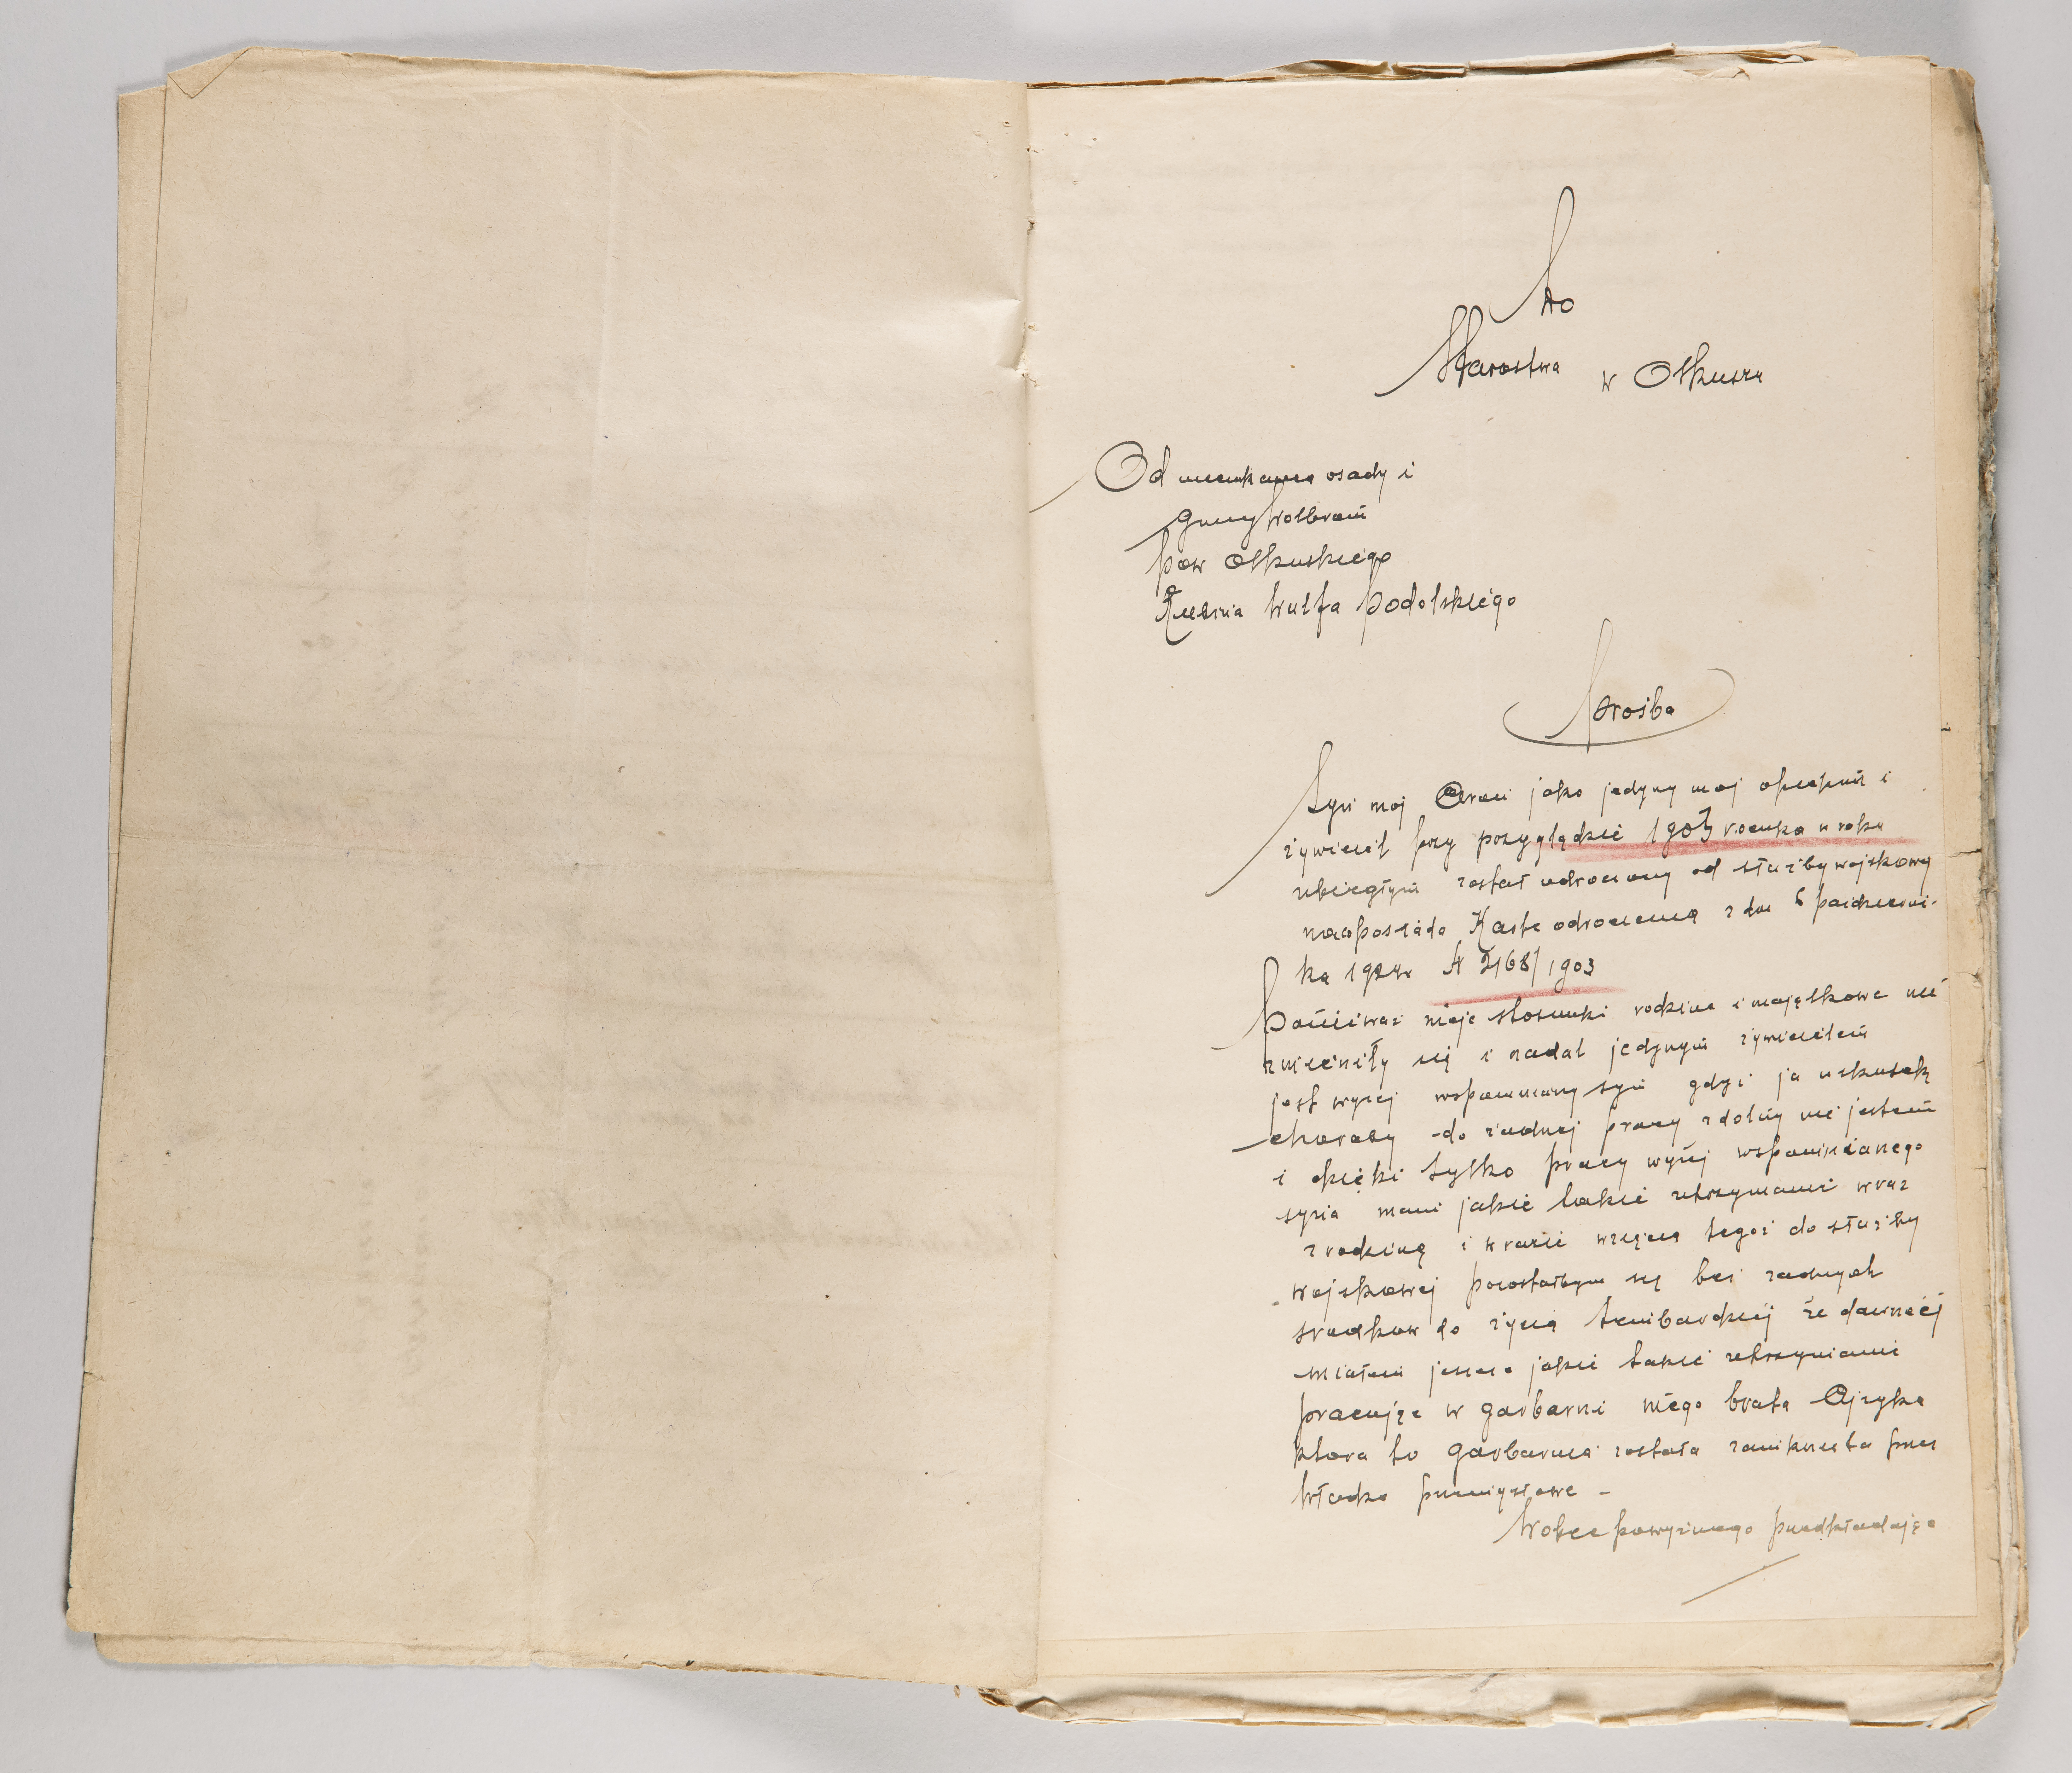 Do
Starostwa w Olkuszu
Od mieszkańca osady i
gminy Wolbrom
pow Olkuskiego
Wulfa Podolskiego
Prośba
Syn moj jako jedyny moj opiekun i
żywiciel przy przyglądzie 1903 rocznika w roku
ubiegłym został odroczony od służby wojskowej
na co posiada Kartę odroczenia z dn 6 październi-
ka 2168/1903
Ponieważ moje stosunki rodzine i majątkowe nie
zmieniły się i nadal jedynym żywicielem
jest wyżej wspomniany syn gdyż ja wskutek
choroby do żadnej pracy zdolny nie jestem
i dzięki tylko pracy wyżej wspomnianego
syna mam jakie takie utrzymanie wraz
z rodziną i w razie wzięcia tegoż do służby
wojskowej pozostałbym się bez żadnych
srodkow do życia tembardziej że dawniej
miałem jeszcze jakie takie utrzymanie
pracując w garbarni mego brata Ajzyka
ktora to garbarnia została zamknięta przez
Władze przemysłowe -
Wobec powyższego przedkładając